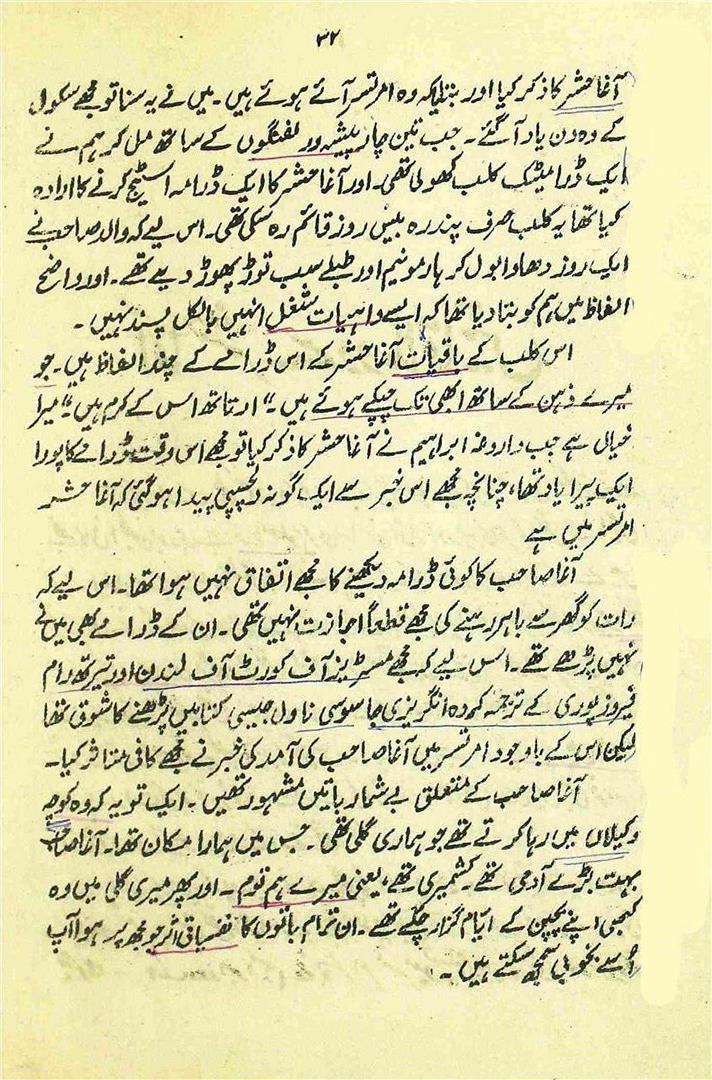 ۳۲
آغا حشر کا ذکر کیا اور بتلایا کہ وہ امرتسر آئے ہوئے ہیں۔ میں نے یہ سنا تو مجھے سکول
کے وہ دن یاد آ گئے۔ جب تین چار پیشہ ور لفنگوں کے ساتھ مل کر ہم نے
ایک ڈرامیٹک کلب کھولی تھی۔ اور آغا حشر کا ایک ڈرامہ اسٹیج کرنے کا ارادہ
کیا تھا یہ کلب صرف پندرہ بیس روز قائم رہ سکی تھی۔ اس لیے کہ والد صاحب نے
ایک روز دھاوا بول کر ہارمونیم اور طبلے سب توڑ پھوڑ دیے تھے۔ اور واضح
الفاظ میں ہم کو بتا دیا تھا کہ ایسے واہیات شغل انہیں بالکل پسند نہیں۔
اس کلب کے باقیات آغا حشر کے اس ڈرامے کے چند الفاظ ہیں۔ جو
میرے ذہن کے ساتھ ابھی تک چپکے ہوئے ہیں۔ "ارتھاتھ اس کے کرم ہیں۔" میرا
خیال ہے جب داروغہ ابراہیم نے آغا حشر کا ذکر کیا تو مجھے اس وقت ڈرامے کا پورا
ایک پیرا یاد تھا، چنانچہ مجھے اس خبر سے ایک گونہ دلچسپی پیدا ہو گئی کہ آغا حشر
امرتسر میں ہے
آغا صاحب کا کوئی ڈرامہ دیکھنے کا مجھے اتفاق نہیں ہوا تھا۔ اس لیے کہ
رات کو گھر سے باہر رہنے کی مجھے قطعاً اجازت نہیں تھی۔ ان کے ڈرامے بھی میں نے
نہیں پڑھے تھے۔ اس لیے کہ مجھے مسٹریز آف کورٹ آف لندن اور تیرتھ رام
فیروز پوری کے ترجمہ کردہ انگریزی جاسوسی ناول جیسی کتابیں پڑھنے کا شوق تھا
لیکن اس کے باوجود امرتسر میں آغا صاحب کی آمد کی خبر نے مجھے کافی متاثر کیا۔
آغا صاحب کے متعلق بے شمار باتیں مشہور تھیں۔ ایک تو یہ کہ وہ کوچہ
وکیلاں میں رہا کرتے تھے جو ہماری گلی تھی۔ جس میں ہمارا مکان تھا۔ آغا صاحب
بہت بڑے آدمی تھے۔ کشمیری تھے، یعنی میرے ہم قوم۔ اور پھر میری گلی میں وہ
کبھی اپنے بچپن کے ایام گزار چکے تھے۔ ان تمام باتوں کا نفسیاتی اثر جو مجھ پر ہوا آپ
اُسے بخوبی سمجھ سکتے ہیں۔